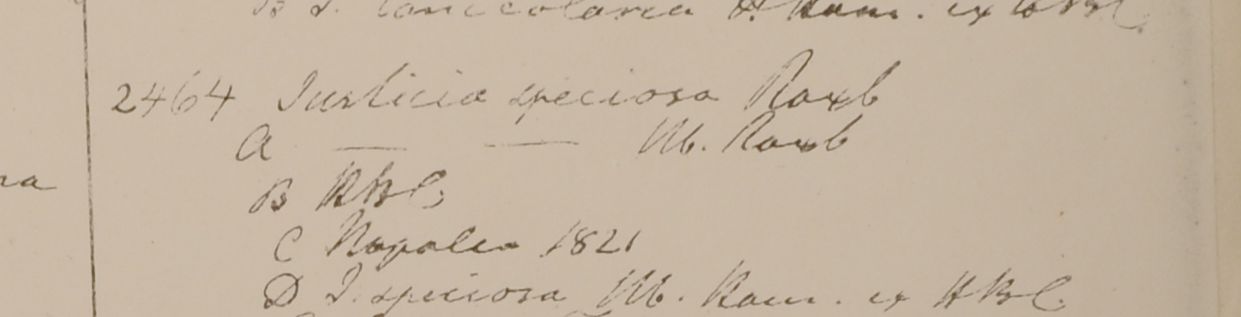 B J. tanicolarea H. Ham. ex HBC.
2464 Justicia speciosa Roxb
A — — Hb. Roxb
na
B HBC.
C Napalea 1821
D J. speciosa Hb. Ham. ex HBC.